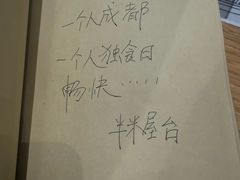 一个人成都
一个人独食日
畅快……
半米屋台